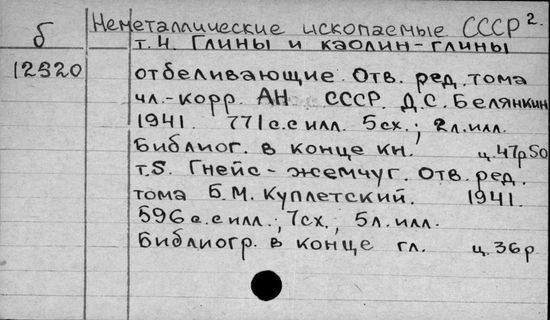 Неметаллические ископаемые СССР 2.
б т.4. Глины и каолин-глины
12520 отбеливающие. Отв. ред. тома
чл.-корр. АН СССР Д.С. Белянкин
1941. 771 с. с илл. 5 сх.; 2 л. илл.
Библиог. в конце кн. ц. 47р50
т.5. Гнейс-жемчуг. Отв. ред.
тома Б.М. Куплетский. 1941.
596 с. с илл.; 7 сх., 5 л. илл.
Библиогр. в конце гл. ц. 36р